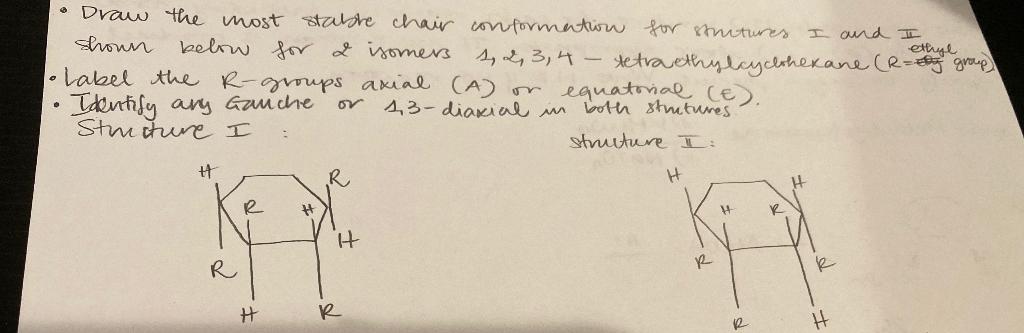 • Draw the most stable chair conformation for strutures I and II
shown below for 2 isomers 1,2,3,4 - tetraethylcyclohexane (R= ethyl group)
• Label the R-groups axial (A) or equatorial (E).
• Identify any Gauche or 1,3-diaxial in both strutures.
Structure I :
structure II :
H R H H
R H H R
H
R R R
H R R H